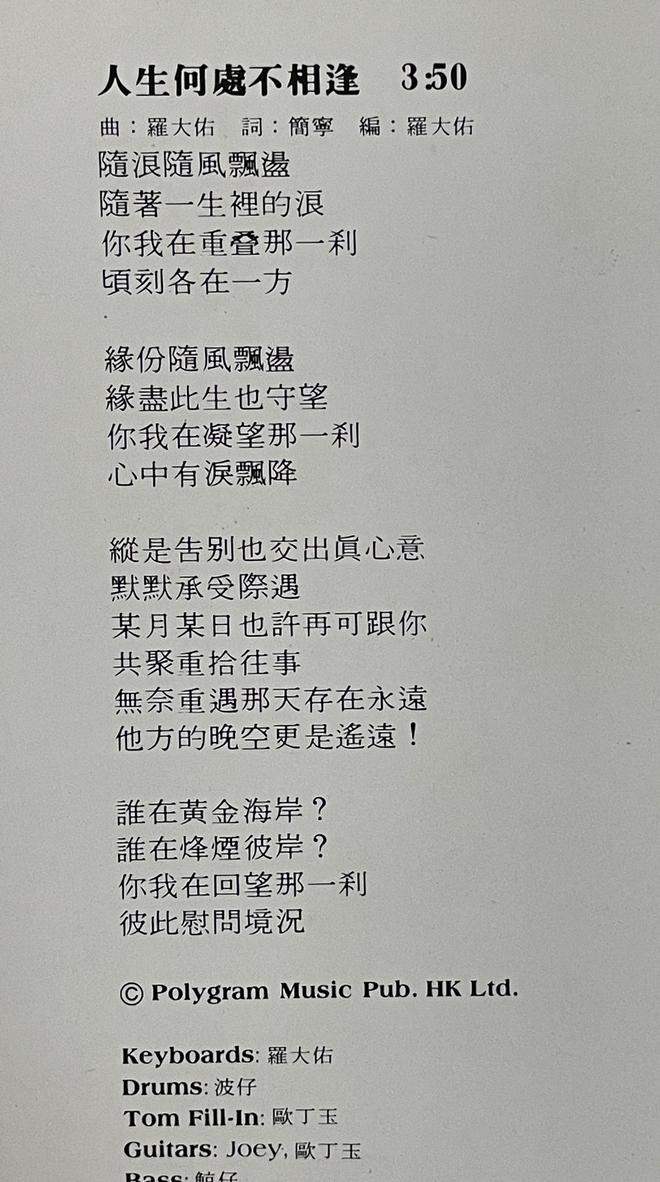 人生何處不相逢 3:50
曲：羅大佑 詞：簡寧 編：羅大佑
隨浪隨風飄盪
隨著一生裡的浪
你我在重叠那一刹
頃刻各在一方
緣份隨風飄盪
緣盡此生也守望
你我在凝望那一刹
心中有淚飄降
縱是告別也交出眞心意
默默承受際遇
某月某日也許再可跟你
共聚重拾往事
無奈重遇那天存在永遠
他方的晚空更是遙遠！
誰在黃金海岸？
誰在烽煙彼岸？
你我在回望那一刹
彼此慰問境況
© Polygram Music Pub. HK Ltd.
Keyboards: 羅大佑
Drums: 波仔
Tom Fill-In: 歐丁玉
Guitars: Joey, 歐丁玉
Bass: 鯨仔